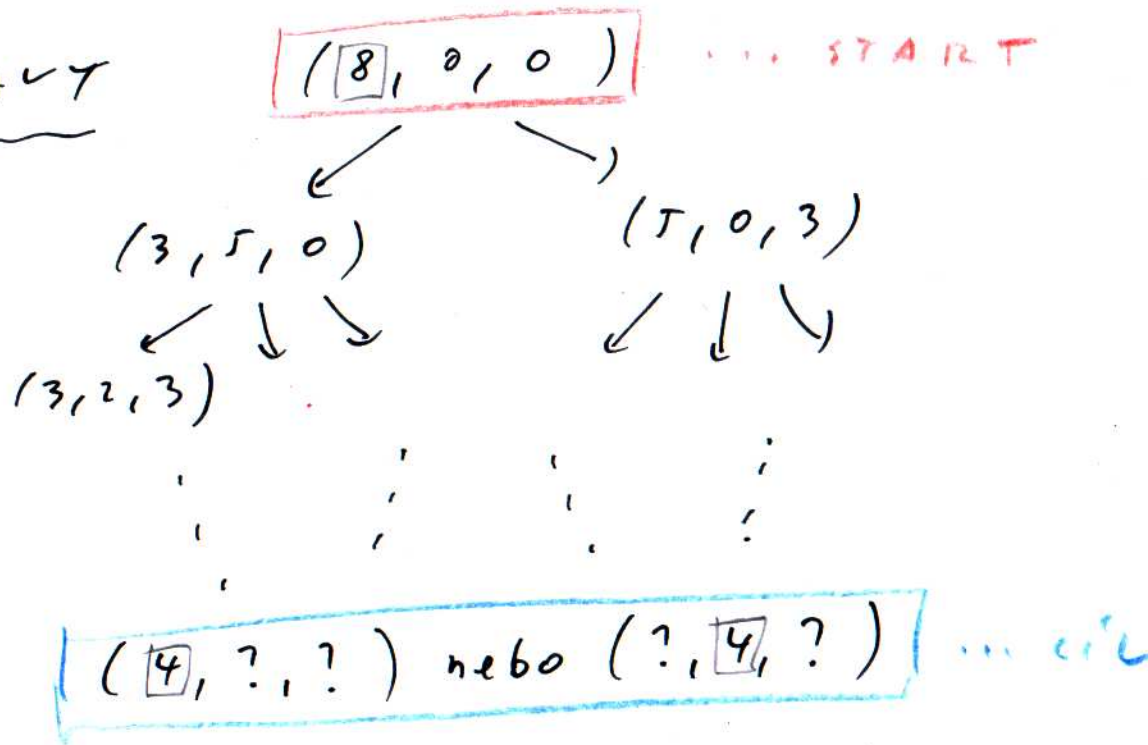 (8, 0, 0) ... START
(3, 5, 0) (5, 0, 3)
(3, 2, 3)
(4, ?, ?) nebo (?, 4, ?) ... cíl